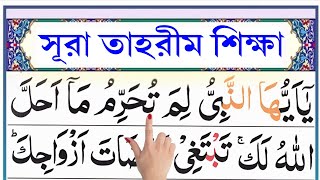 সূরা তাহরীম শিক্ষা
يٰٓاَيُّهَا النَّبِىُّ لِمَ تُحَرِّمُ مَآ اَحَلَّ
اللّٰهُ لَكَ ۚ تَبْتَغِىْ اَزْوَاجِكَ ؕ